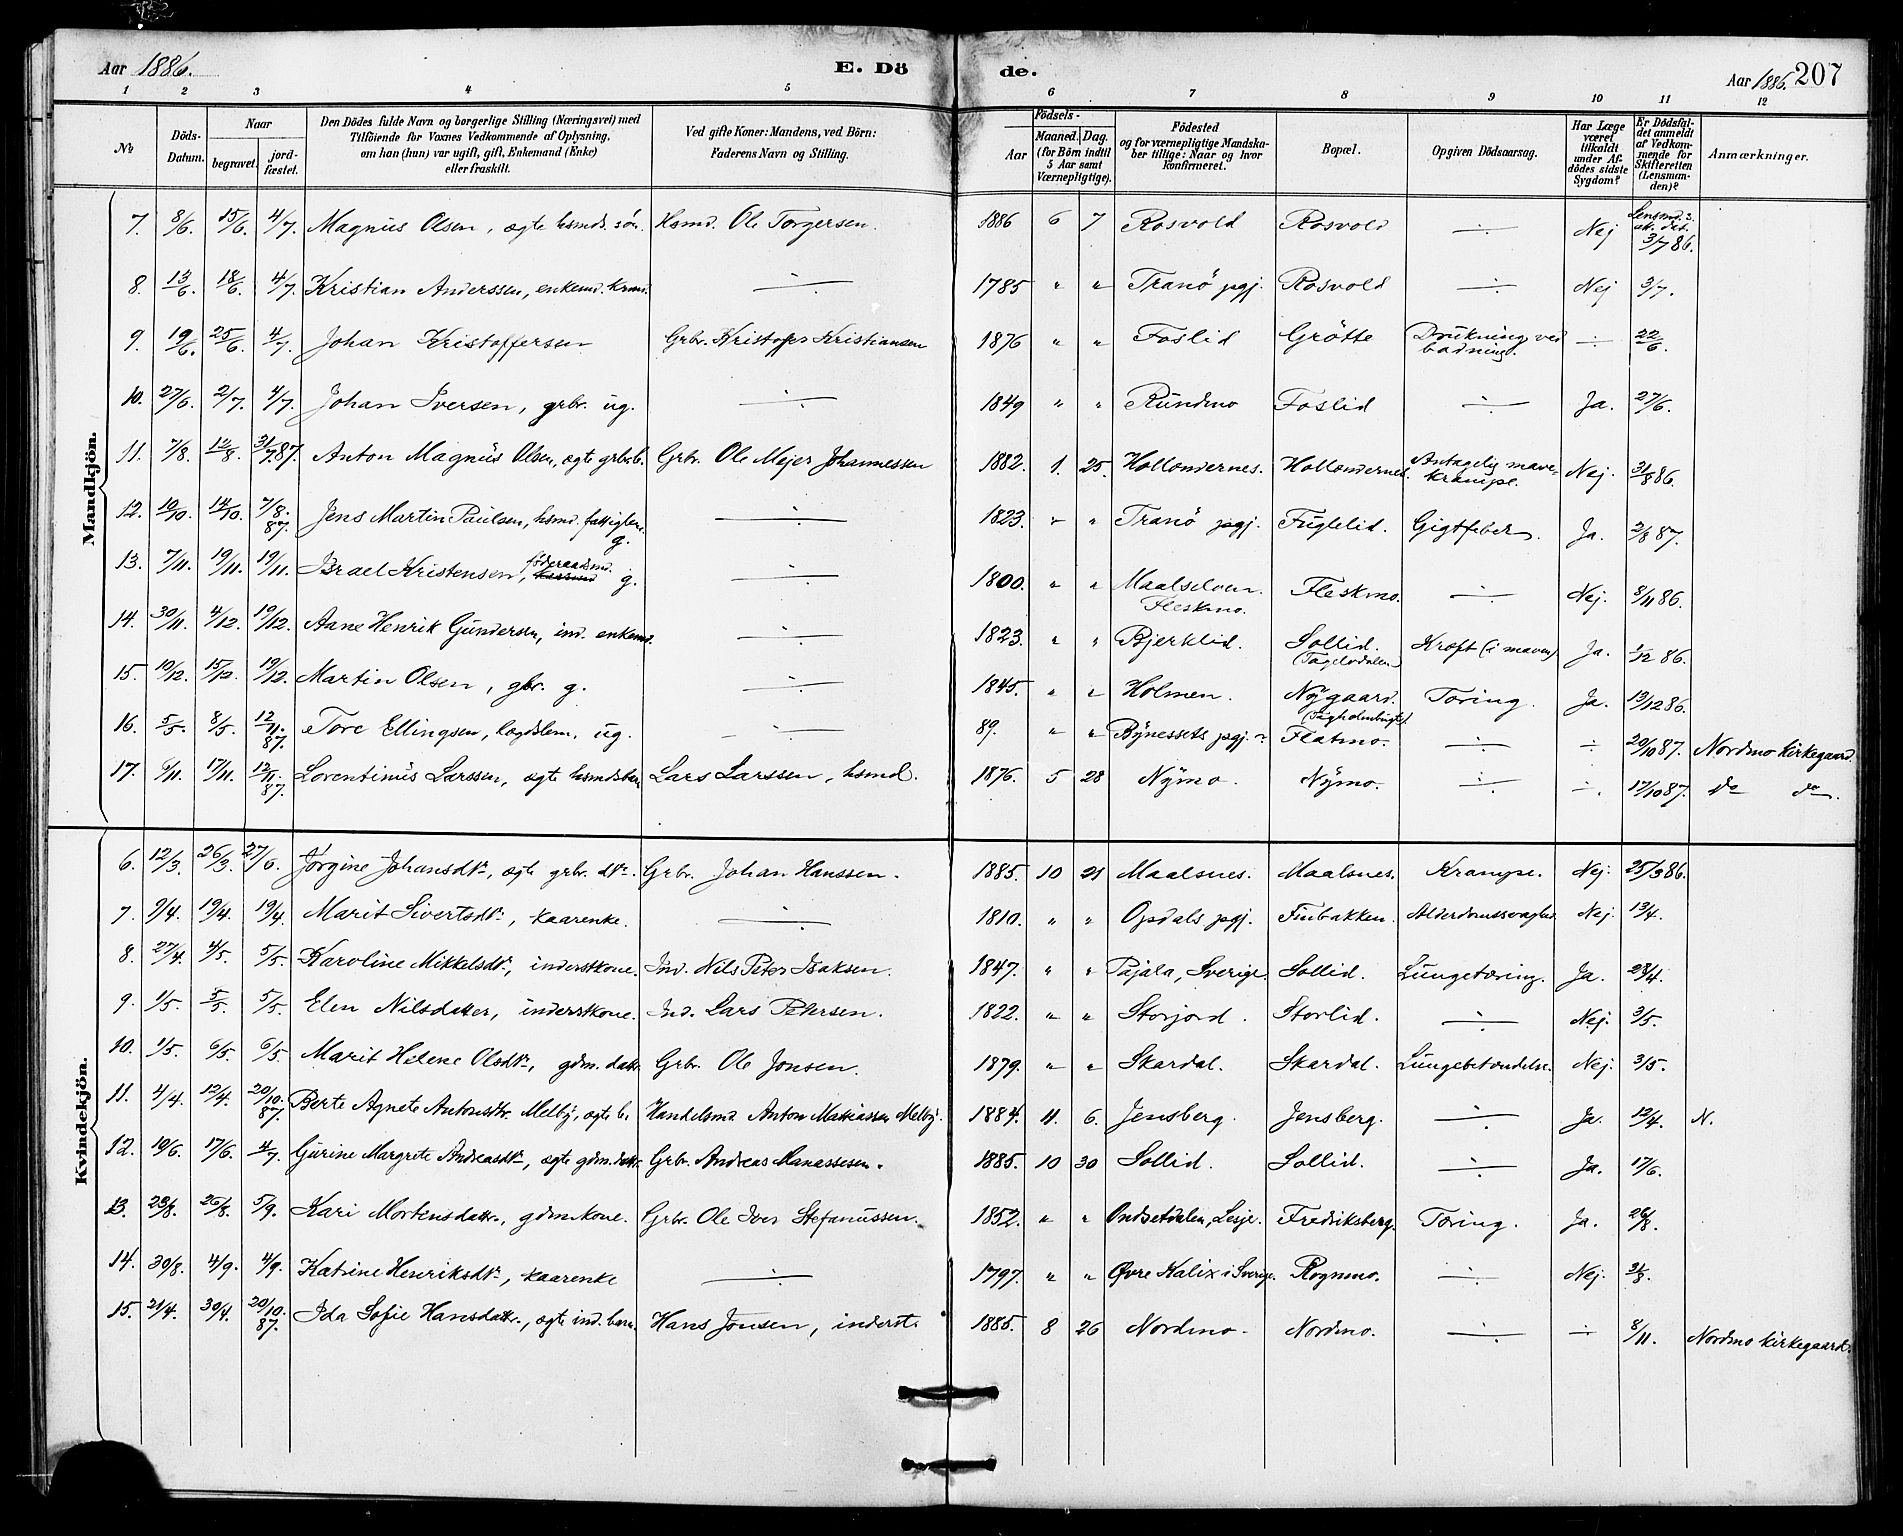 Aar 1886. E. Dö de. Aar 1886. 207
1 2 3 4 5 6 7 8 9 10 11 12
№ Döds-Datum. Naar begravet. jordfæstet. Den Dödes fulde Navn og borgerlige Stilling (Næringsvei) med Tilföiende for Voxnes Vedkommende af Oplysning, om han (hun) var ugift, gift, Enkemand (Enke) eller fraskilt. Ved gifte Koner: Mandens, ved Börn: Faderens Navn og Stilling. Födsels- Aar Maaned. Dag. (for Börn indtil 5 Aar samt Værnepligtige). Födested og for værnepligtige Mandskaber tillige: Naar og hvor konfirmeret. Bopæl. Opgiven Dödsaarsag. Har Læge været tilkaldt under Afdödes sidste Sygdom? Er Dödsfaldet anmeldt af Vedkommende for Skifteretten (Lensmanden)? Anmærkninger.
Mandkjön.
7. 8/6. 15/6. 4/7. Magnus Olsen, ægte hsmds. sön. Hsmd. Ole Torgersen. 1886 6 7 Rosvold Rosvold ÷ Nej Lensmd.s. att. dat. 3/7 86.
8. 13/6. 18/6. 4/7. Kristian Anderssen, enkemd. ÷ 1785 " " Tranö pgj. Rosvold ÷ Nej 3/7.
9. 19/6. 25/6. 4/7. Johan Kristoffersen Grbr. Kristoffer Kristiansen 1876 " " Foslid Grötte Drukning ved badning. ÷ 22/6.
10. 27/6. 2/7. 4/7. Johan Iversen, grbr. ug. ÷ 1849 " " Rundmo Foslid ÷ Ja. 27/6.
11. 7/8. 12/8. 31/7.87. Anton Magnus Olsen, ægte grbr.b. Grbr. Ole Mejer Johannessen 1882. 1. 25. Hollændernes. Hollændernes. Antagelig mavekrampe. Nej. 31/8 86.
12. 10/10. 14/10. 7/8. 87. Jens Martin Paulsen, hsmd. fattiglem. g. ÷ 1823. " " Tranö pgj. Fuglelid. Gigtfeber. Ja. 2/8 87.
13. 7/11. 19/11. 19/11. Israel Kristensen, föderaadsmd. g. ÷ 1800. " " Maalselven. Fleskmo. Fleskmo. ÷ Nej. 8/11 86.
14. 30/11. 4/12. 19/12. Aane Henrik Gundersen, ind. enkemd. ÷ 1823. " " Bjerklid. Sollid. Kræft (i maven) Ja. 1/12 86.
15. 10/12. 15/12. 19/12. Martin Olsen, gbr. g. ÷ 1845. " " Holmen. Nygaard. Tæring. Ja. 13/12 86.
16. 5/5. 8/5. 12/11. 87. Tore Ellingsen, lægdslem. ug. ÷ 89. " " Bynessets pgj. ? Flatmo. ÷ ÷ 20/10 87. Nordmo kirkegaard.
17. 6/11. 17/11. 12/11. 87. Lorentinus Larssen, ægte hsmdsbarn Lars Larssen, hsmd. 1876. 5 28 Nymo. Nymo. ÷ ÷ 17/10 87. do do.
Kvindekjön.
6. 12/3. 26/3. 27/6. Jörgine Johansdtr., ægte grbr. dtr. Grbr. Johan Hanssen. 1885. 10 21 Maalsnes. Maalsnes. Krampe. Nej. 25/3 86.
7. 9/4. 19/4. 19/4. Marit Sivertsdtr., kaarenke. ÷ 1810. " " Opdals pgj. Finbakken. Alderdomssvaghed. Nej. 13/4.
8. 27/4. 4/5. 5/5. Karoline Mikkelsdtr., inderstkone. Ind. Nils Peter Isaksen. 1847. " " Pajala, Sverige. Sollid. Lungetæring. Ja. 28/4.
9. 1/5. 5/5. 5/5. Elen Nilsdatter, inderstkone. Ind. Lars Petersen. 1822. " " Storjord. Storlid. ÷ Nej. 3/5.
10. 1/5. 6/5. 6/5. Marit Helene Olsdtr., gdm. dattr. Grbr. Ole Jonsen. 1879. " " Skardal. Skardal. Lungebetændelse. Nej. 3/5.
11. 4/4. 12/4. 20/10. 87. Berte Agnete Antonsdtr. Melby, ægte b. Handelsmd. Anton Mathiassen Melby. 1884. 11. 6. Jensberg. Jensberg. ÷ Ja. 12/4. N.
12. 10/6. 17/6. 4/7. Gurine Margrete Andreasdtr., ægte gdm. dattr. Grbr. Andreas Manassesen. 1885. 10 30 Sollid. Sollid. ÷ Ja. 17/6.
13. 23/8. 26/8. 5/9. Kari Mortensdattr., gdmkone. Grbr. Ole Iver Stefanussen. 1852. " " Ondsetdalen, Lesje. Fredriksberg. Tæring. Ja. 26/8.
14. 30/8. 4/9. 4/9. Katrine Henriksdtr., kaarenke ÷ 1797. " " Øvre Kalix i Sverige. Rognmo. ÷ Nej. 31/8.
15. 21/4. 30/4. 20/10. 87. Ida Sofie Hansdattr., ægte ind. barn. Hans Jonsen, inderst. 1885. 8 26 Nordmo. Nordmo. ÷ ÷ 8/11. Nordmo kirkegaard.